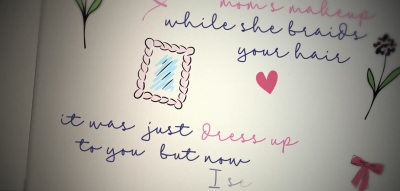 mom's makeup
while she braids
your hair
it was just dress up
to you but now
I se